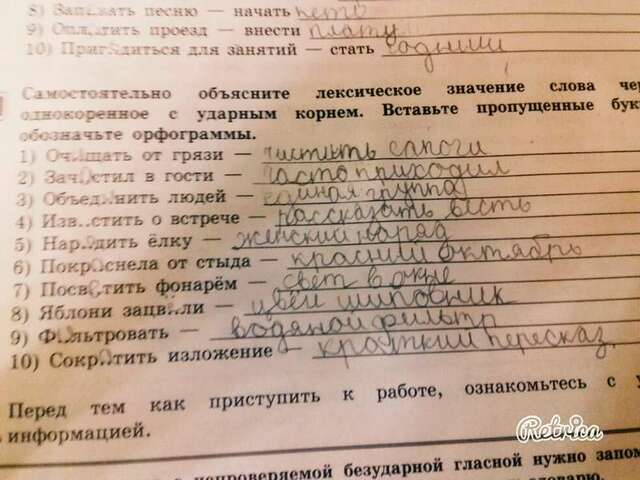 8) Запевать песню — начать петь
9) Оплатить проезд — внести плату
10) Пригодиться для занятий — стать годными
Самостоятельно объясните лексическое значение слова чер
однокоренное с ударным корнем. Вставьте пропущенные бук
обозначьте орфограммы.
1) Очищать от грязи — чистить сапоги
2) Зачастил в гости — часто приходил
3) Объединить людей — единая группа
4) Изв..стить о встрече — рассказать весть
5) Нарядить ёлку — женский наряд
6) Покраснела от стыда — красний октябрь
7) Посветить фонарём — свет в окне
8) Яблони зацв..ли — цвёл шиповник
9) Фильтровать — водяной фильтр
10) Сократить изложение — краткий пересказ.
Перед тем как приступить к работе, ознакомьтесь с у
информацией.
Retrica
непроверяемой безударной гласной нужно запом
словарю.